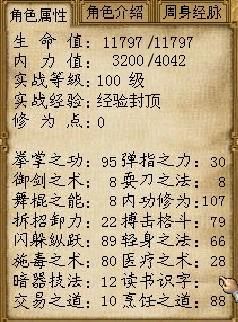 角色属性 角色介绍 周身经脉
生命值: 11797/11797
内力值: 3200/4042
实战等级: 100 级
实战经验: 经验封顶
修为点: 0
拳掌之功: 95 弹指之力: 30
御剑之术: 8 耍刀之法: 8
舞棍之能: 8 内功修为: 107
拆招卸力: 22 搏击格斗: 79
闪躲纵跃: 89 轻身之法: 66
施毒之术: 80 医疗之术: 28
暗器技法: 12 读书识字:
交易之道: 10 烹饪之道: 88